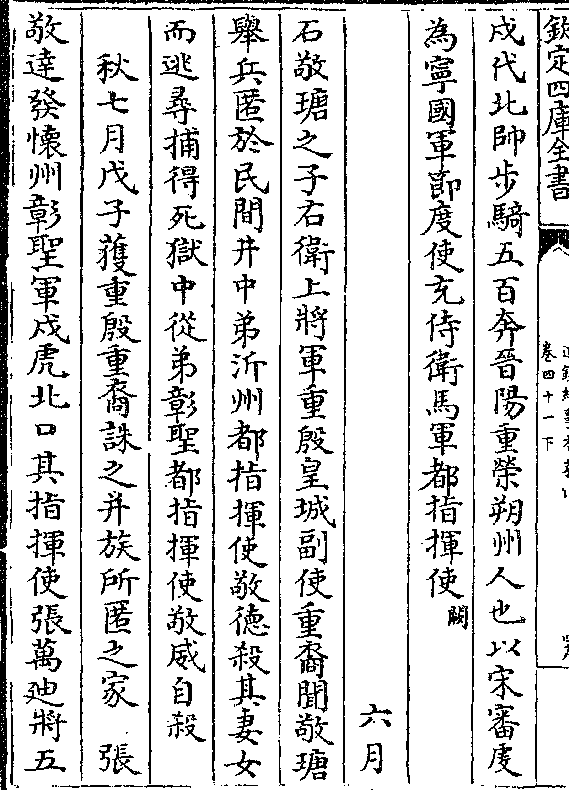 欽定四庫全書
卷四十一下
戍代北帥步騎五百奔晉陽重榮朔州人也以宋審虔
為寧國軍節度使充侍衛馬軍都指揮使闕
六月
石敬瑭之子右衛上將軍重殷皇城副使重裔聞敬瑭
舉兵匿於民間井中弟沂州都指揮使敬德殺其妻女
而逃尋捕得死獄中從弟彰聖都指揮使敬威自殺
秋七月戊子獲重殷重裔誅之并族所匿之家 張
敬達發懷州彰聖軍戍虎北口其指揮使張萬廸將五